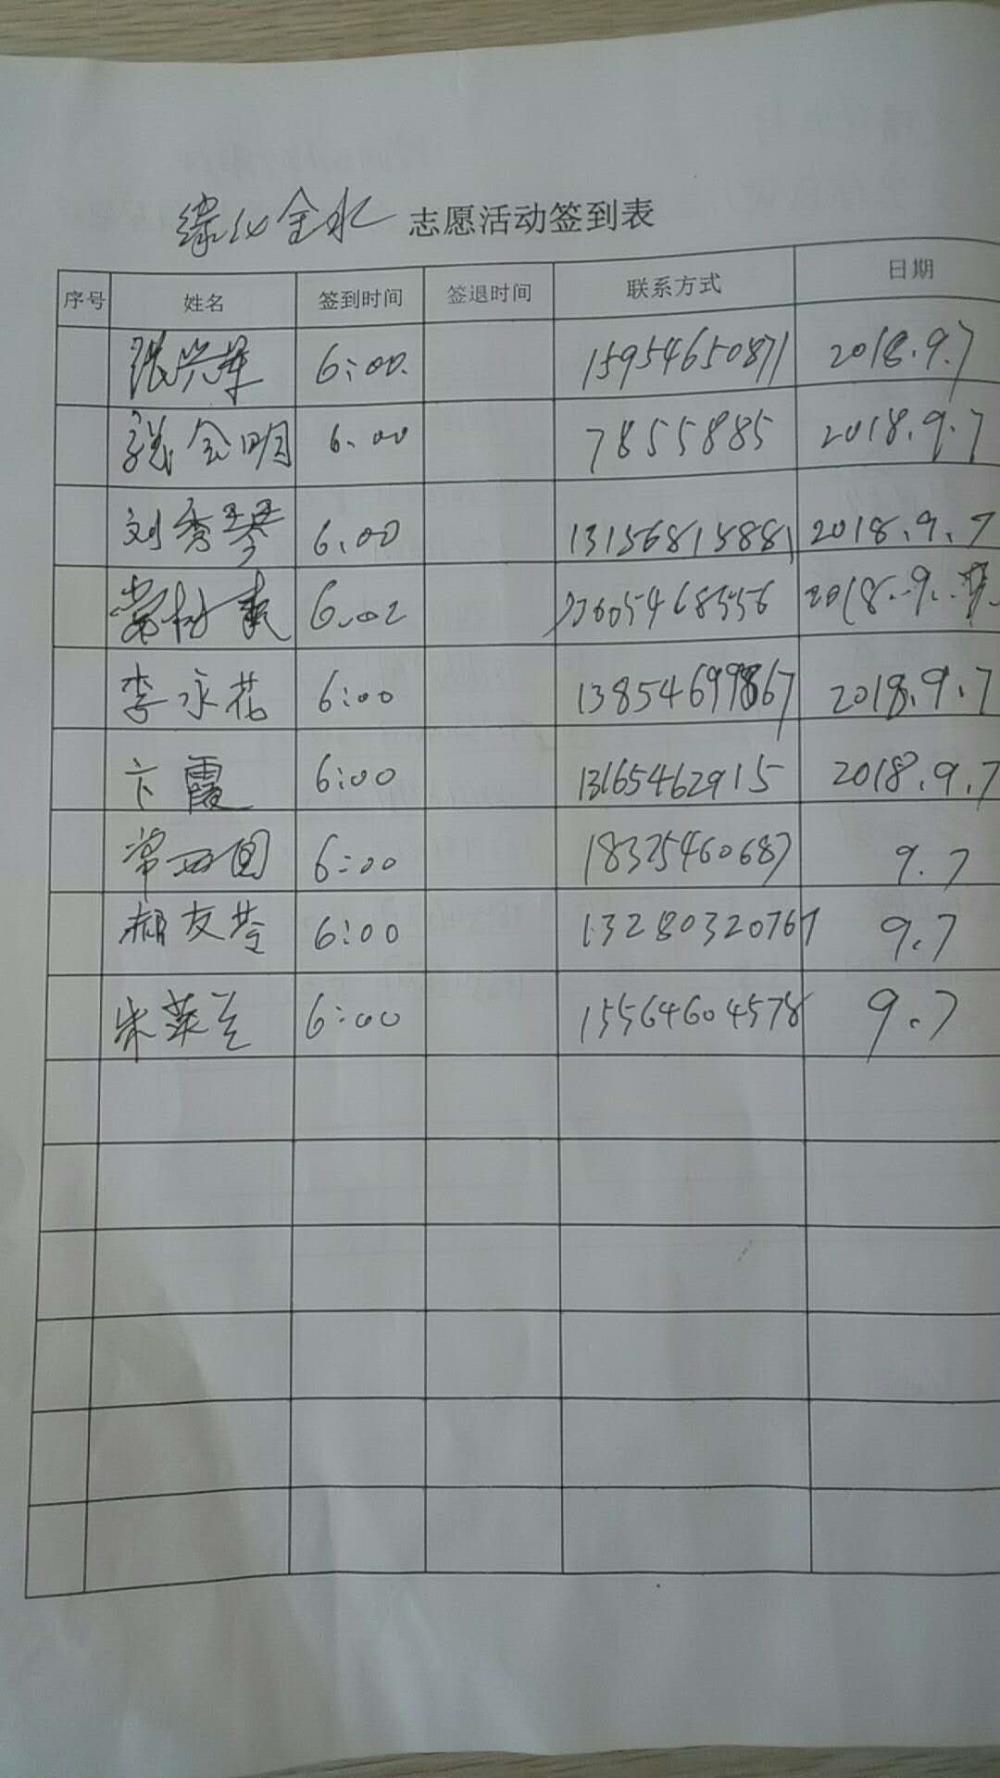 志愿活动签到表
序号 姓名 签到时间 签退时间 联系方式 日期
张兴军 6:00. 15954650871 2018.9.7
张金明 6.00 7855885 2018.9.7
刘秀琴 6.00 13156815881 2018.9.7
6.02 2018.9.
李永花 6:00 13854699867 2018.9.7
卞霞 6:00 13165462915 2018.9.7
常 6:00 18325460687 9.7
郝友苓 6:00 13280320767 9.7
朱菜兰 6:00 15564604578 9.7